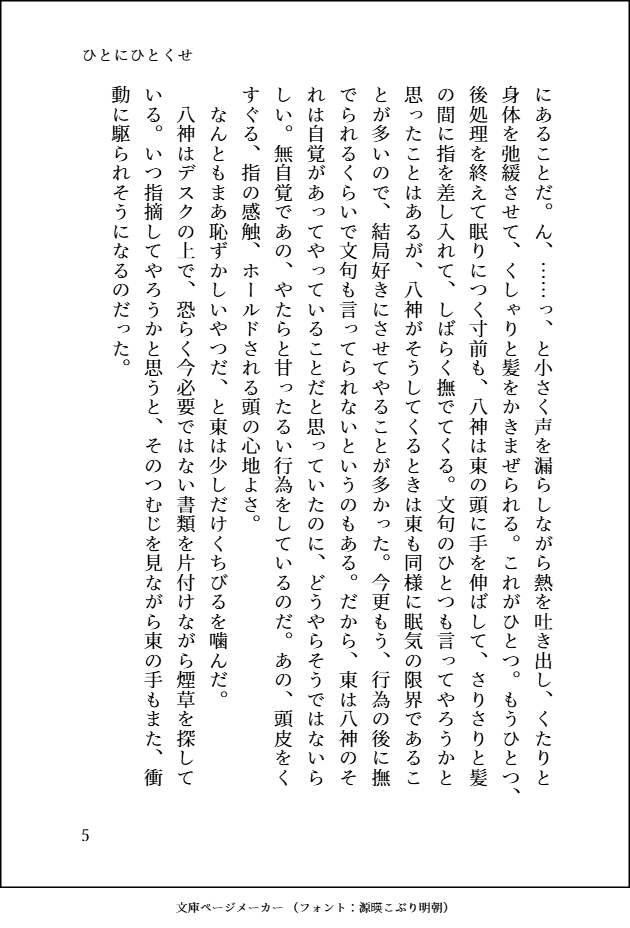 ひとにひとくせ
にあることだ。ん、……っ、と小さく声を漏らしながら熱を吐き出し、くたりと
身体を弛緩させて、くしゃりと髪をかきまぜられる。これがひとつ。もうひとつ、
後処理を終えて眠りにつく寸前も、八神は東の頭に手を伸ばして、さりさりと髪
の間に指を差し入れて、しばらく撫でてくる。文句のひとつも言ってやろうかと
思ったことはあるが、八神がそうしてくるときは東も同様に眠気の限界であるこ
とが多いので、結局好きにさせてやることが多かった。今更もう、行為の後に撫
でられるくらいで文句も言ってられないというのもある。だから、東は八神のそ
れは自覚があってやっていることだと思っていたのに、どうやらそうではないら
しい。無自覚であの、やたらと甘ったるい行為をしているのだ。あの、頭皮をく
すぐる、指の感触、ホールドされる頭の心地よさ。
なんともまあ恥ずかしいやつだ、と東は少しだけくちびるを噛んだ。
八神はデスクの上で、恐らく今必要ではない書類を片付けながら煙草を探して
いる。いつ指摘してやろうかと思うと、そのつむじを見ながら東の手もまた、衝
動に駆られそうになるのだった。
5
文庫ページメーカー（フォント：源暎こぶり明朝）